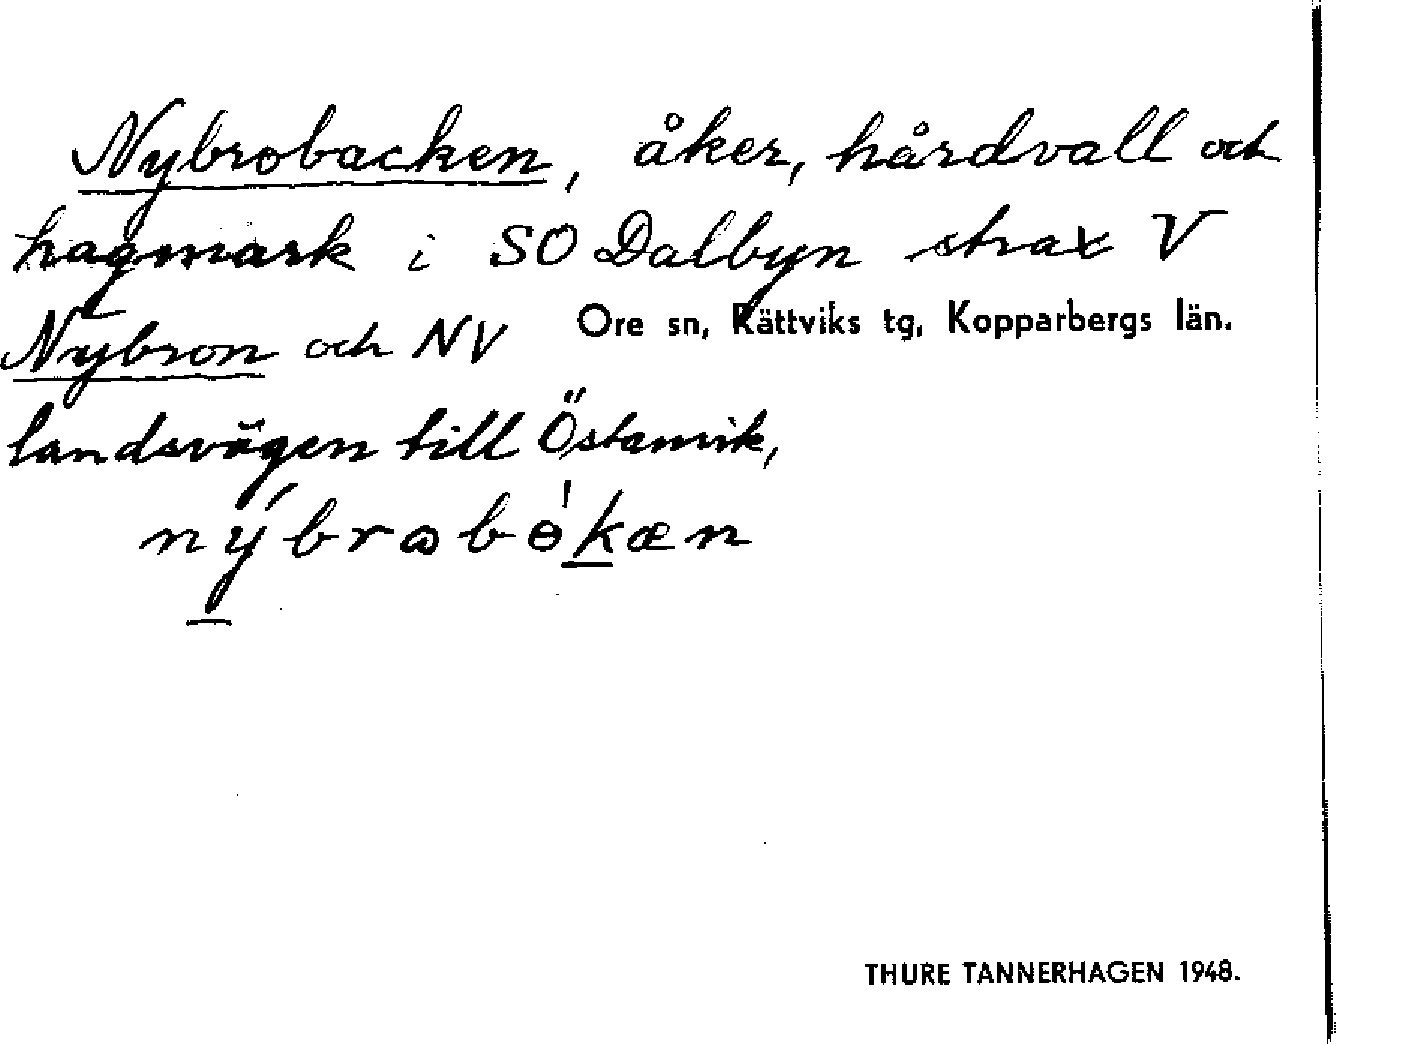 Nybrobacken, åker, hårdvall och
hagmark i SO Dalbyn strax V
Nybron och NV
Ore sn, Rättviks tg, Kopparbergs län.
landsvägen till Östanvik,
nýbrɷbɵ̍kæn
THURE TANNERHAGEN 1948.